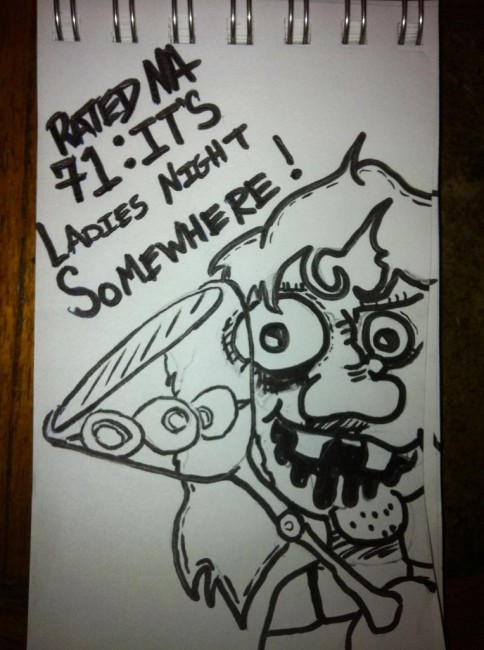 RATED NA
71: IT'S
LADIES NIGHT
SOMEWHERE!